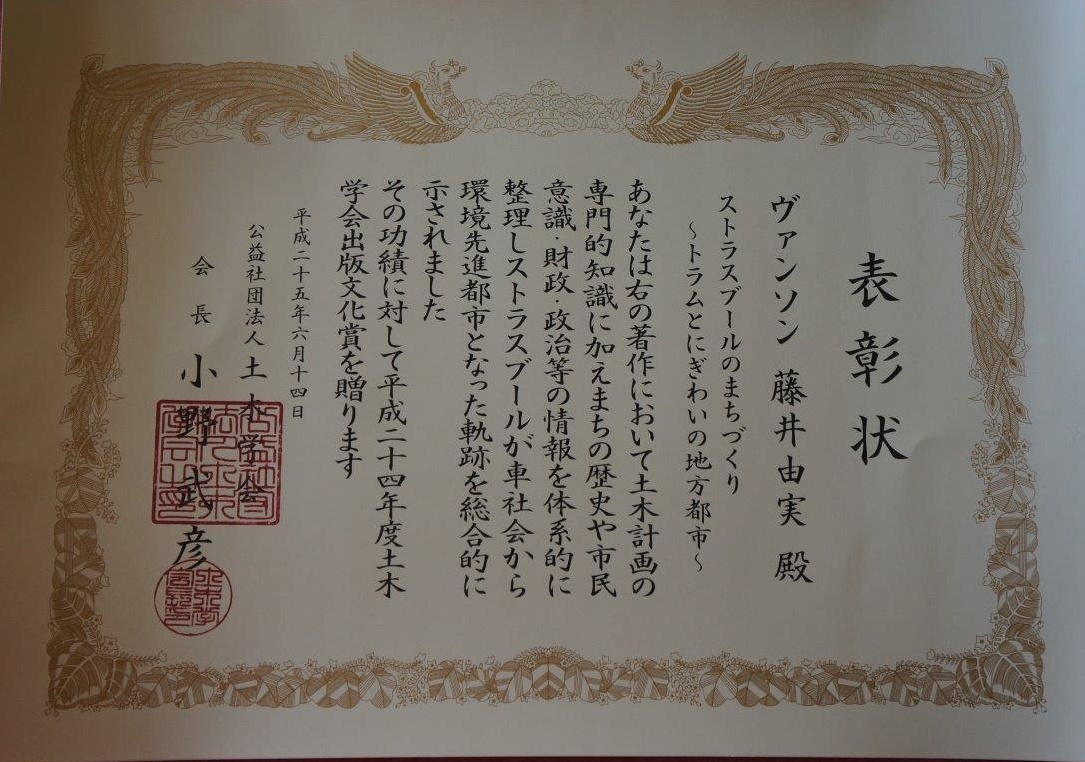 表彰状
ヴァンソン 藤井由実 殿
ストラスブールのまちづくり
～トラムとにぎわいの地方都市～
あなたは右の著作において土木計画の
専門的知識に加えまちの歴史や市民
意識・財政・政治等の情報を体系的に
整理しストラスブールが車社会から
環境先進都市となった軌跡を総合的に
示されました
その功績に対して平成二十四年度土木
学会出版文化賞を贈ります
平成二十五年六月十四日
公益社団法人 土木学会
会長 小野武彦